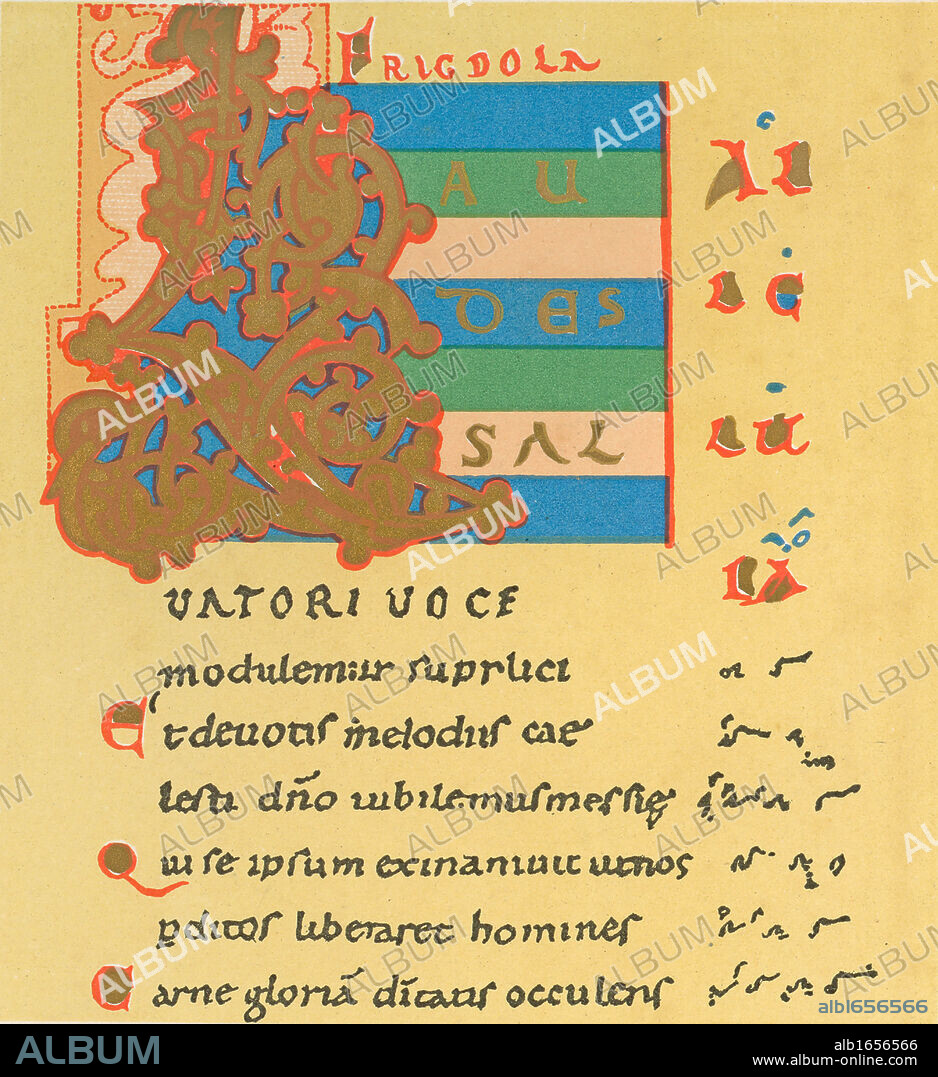 FRIGDOLA
LAU
DES
SAL
AL
LE
LU
IA
UATORI UOCE
modulemur supplici
Et deuotis melodiis cae
lesti dño iubilemus messię
Qui se ipsum exinaniuit ut nos
pditos liberaret homines
Carne gloriā dītatis occulens
ALBUM
alb1656566
ALBUM
alb1656566
www.album-online.com